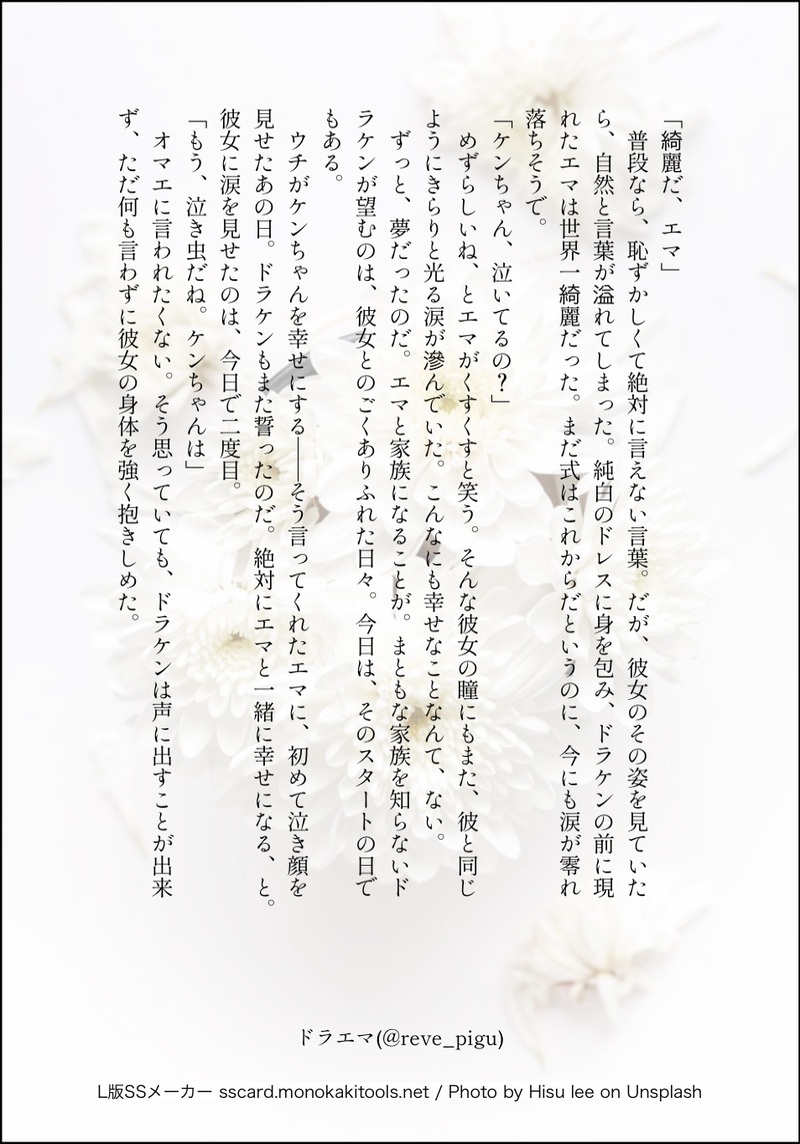 「綺麗だ、エマ」
　普段なら、恥ずかしくて絶対に言えない言葉。だが、彼女のその姿を見ていた
ら、自然と言葉が溢れてしまった。純白のドレスに身を包み、ドラケンの前に現
れたエマは世界一綺麗だった。まだ式はこれからだというのに、今にも涙が零れ
落ちそうで。
「ケンちゃん、泣いてるの？」
　めずらしいね、とエマがくすくすと笑う。そんな彼女の瞳にもまた、彼と同じ
ようにきらりと光る涙が滲んでいた。こんなにも幸せなことなんて、ない。
　ずっと、夢だったのだ。エマと家族になることが。まともな家族を知らないド
ラケンが望むのは、彼女とのごくありふれた日々。今日は、そのスタートの日で
もある。
　ウチがケンちゃんを幸せにする――そう言ってくれたエマに、初めて泣き顔を
見せたあの日。ドラケンもまた誓ったのだ。絶対にエマと一緒に幸せになる、と。
彼女に涙を見せたのは、今日で二度目。
「もう、泣き虫だね。ケンちゃんは」
　オマエに言われたくない。そう思っていても、ドラケンは声に出すことが出来
ず、ただ何も言わずに彼女の身体を強く抱きしめた。
ドラエマ(@reve_pigu)
L版SSメーカー sscard.monokakitools.net / Photo by Hisu lee on Unsplash